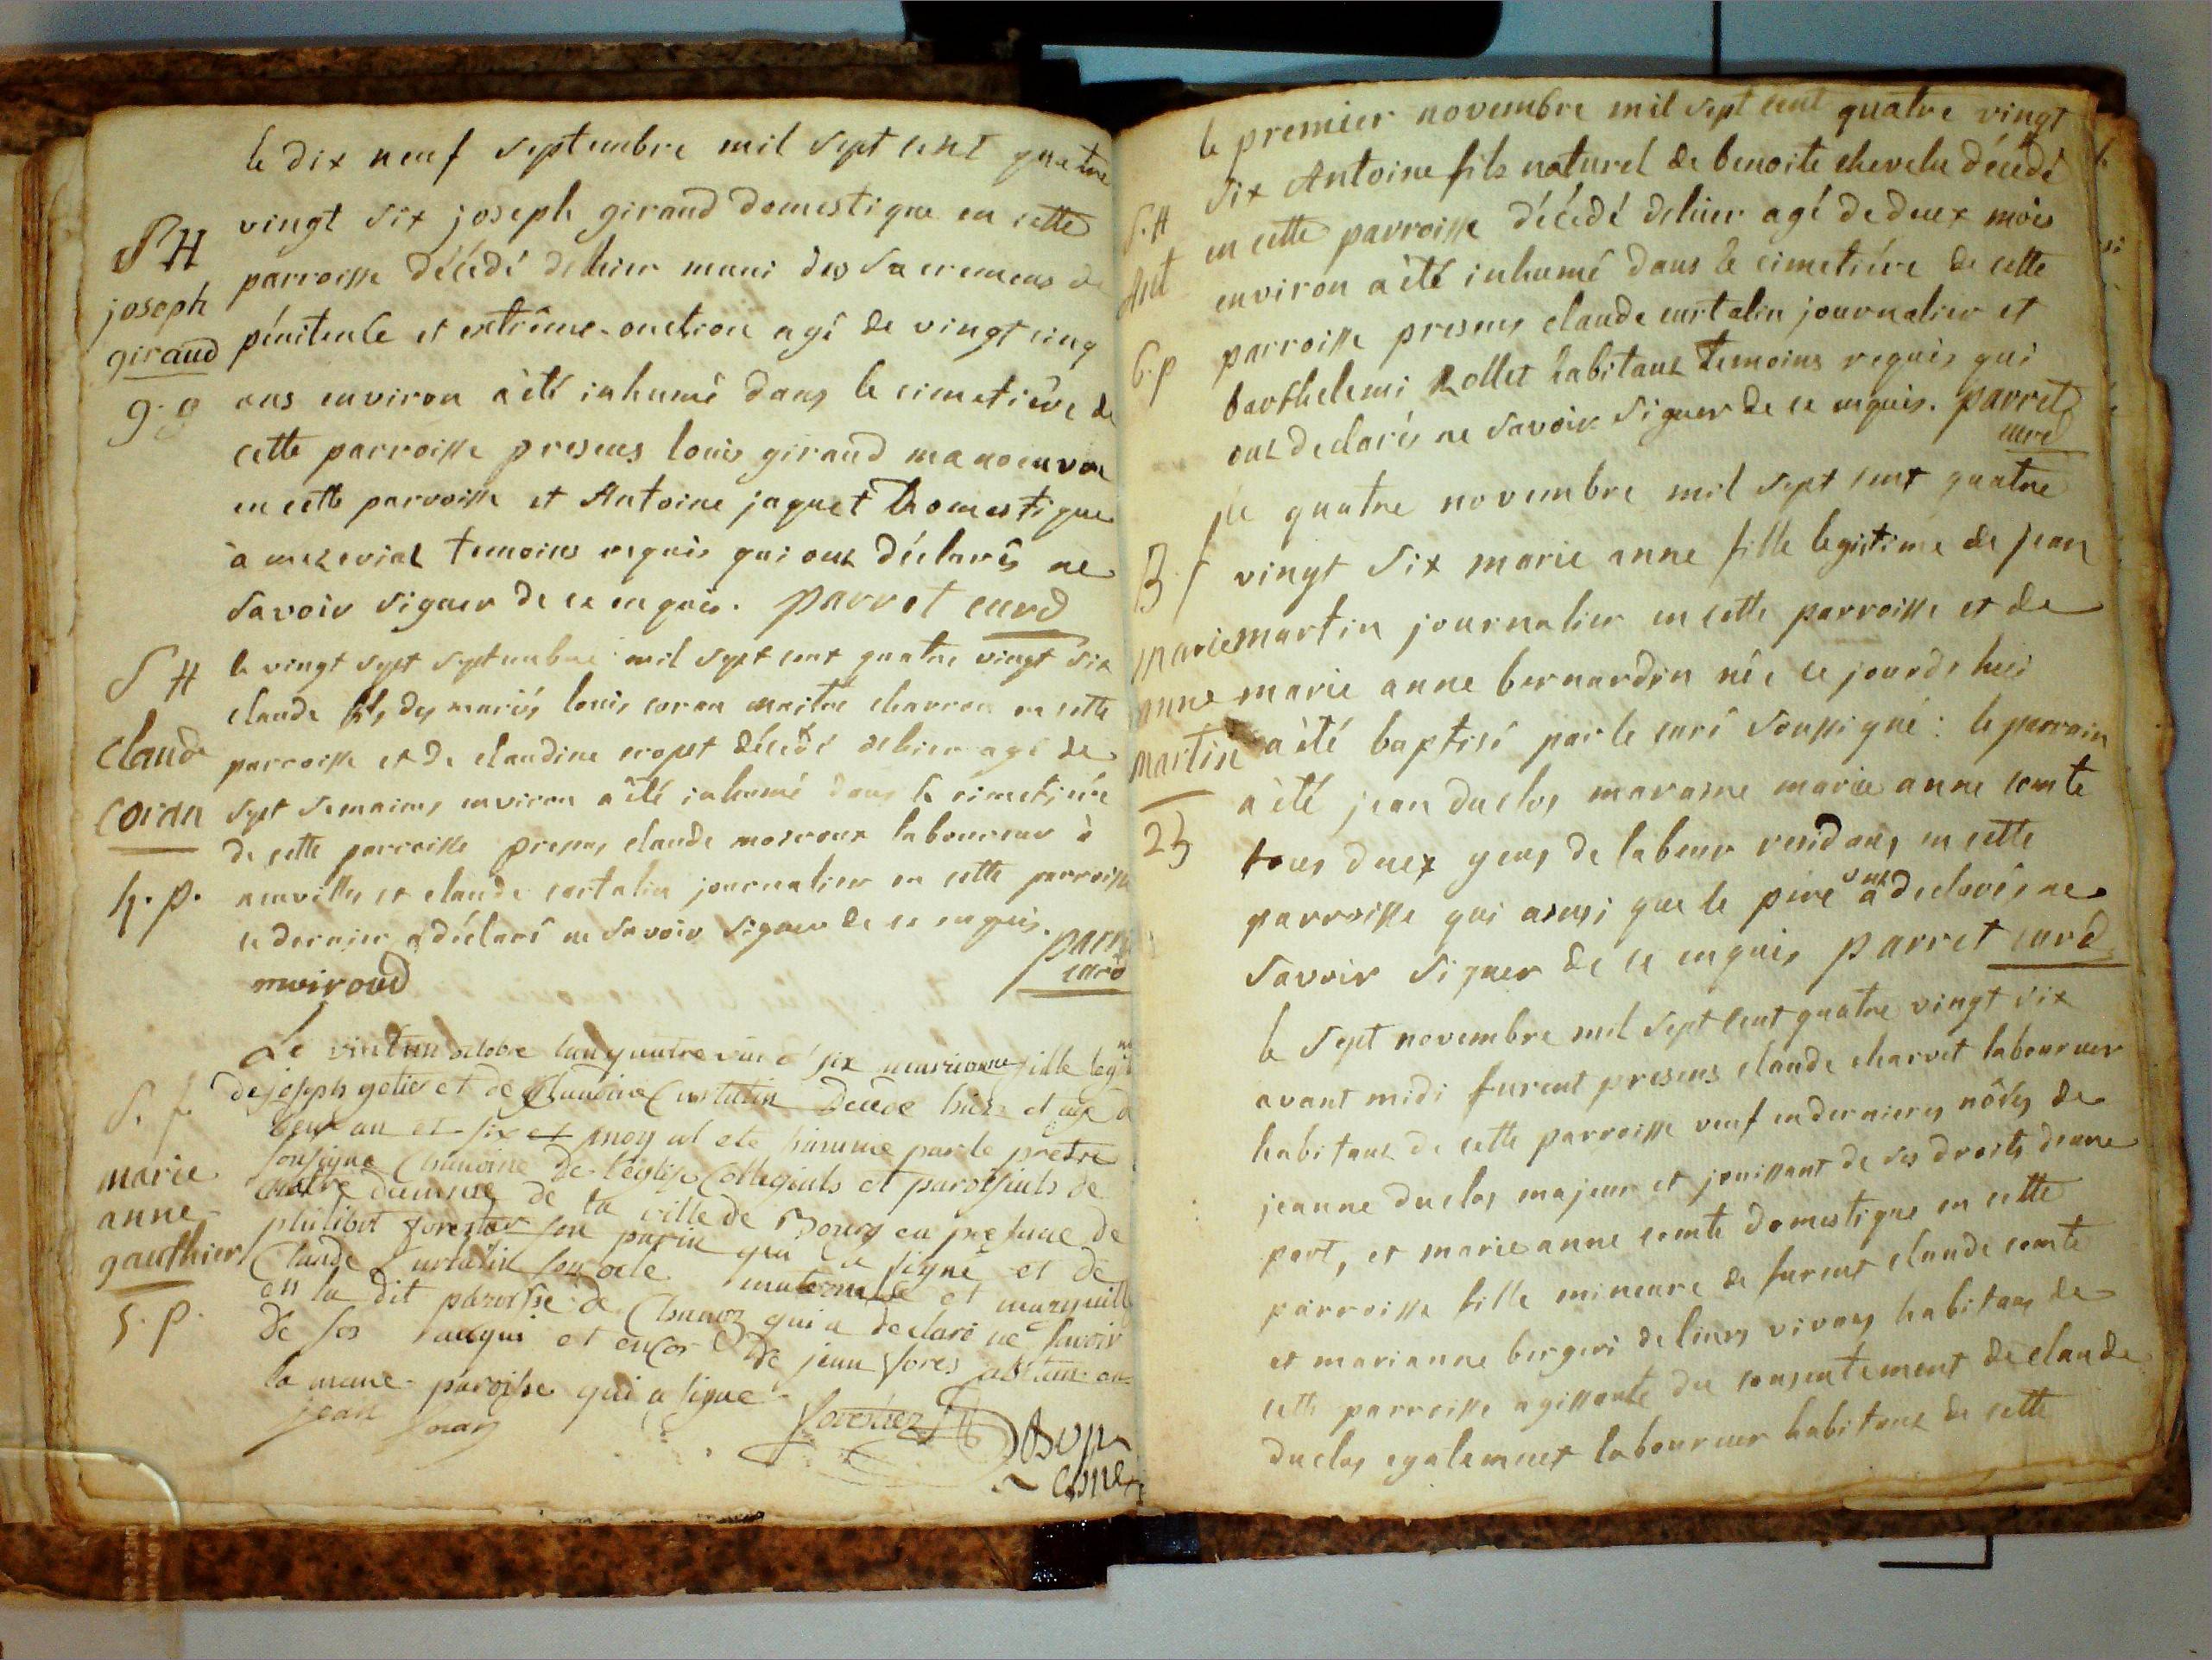 le dix neuf septembre mil sept cent quatre
vingt six joseph giraud domestique en cette
parroisse décédé dehier muni des sacremens de
pénitence et extrême-onction agé de vingt cinq
ans environ à été inhumé dans le cimetière de
cette parroisse presens louis giraud manoeuvre
en cette parroisse et Antoine jaquet Domestique
à temoins requis qui ont déclarés ne
savoir signer de ce enquis. parret curé
S H
joseph
giraud
g. g
le vingt sept septembre mil sept cent quatre vingt six
claude fils des mariés louis coran maitre charron en cette
parroisse et de claudine décédé dehier agé de
sept semaines environ a été inhumé dans le cimetière
de cette parroisse presens claude laboureur à
neuville et claude curtalin journalier en cette parroisse
ce dernier a déclaré ne savoir signer de ce enquis.
parret
curé
muiroud
S H
claude
coran
h. p.
Le vint un octobre lan quatre vin six mariorine fille legi
de joseph gotier et de Claudine Curtalin Decede hier et age d
deux an et six et moy at ete himme par le pretre
sousigne Chanoine de leglise Collegials et paroissials de
notre damme de la ville de Bourg en presence de
philibert forestier son parin qui a signe et de
Claude Curtalin son oncle maternelle et
en la dit paroisse de qui a declaré ne savoir
de jean fores abitan en
la meme paroisse qui a signe
jean foray
forestier
S. f.
marie
anne
gauthier
5. p.
le premier novembre mil sept cent quatre vingt
six Antoine fils naturel de benoite chevelu décédé
en cette parroisse décédé dehier agé de deux mois
environ a été inhumé dans le cimetière de cette
parroisse presens claude curtalin journalier et
barthelemi Rollet habitans temoins requis qui
ont declarés ne savoir signer de ce enquis. parret
curé
S. H
Ant
6. p
le quatre novembre mil sept cent quatre
vingt six marie anne fille legitime de jean
martin journalier en cette parroisse et de
marie anne bernardin née ce jourdhui
a été baptisé par le curé soussigné: le parrain
a été jean duclos maraine marie anne comte
tous deux gens de labeur residans en cette
parroisse qui ainsi que le père ont declarés ne
savoir signer de ce enquis parret curé
B. f
marie
anne
martin
23
le sept novembre mil sept cent quatre vingt six
avant midi furent presens claude charvet laboureur
habitant de cette parroisse veuf en dernieres nôces de
jeanne duclos majeur et jouissant de ses droits dune
part, et marie anne comte domestique en cette
parroisse fille mineure de furent claude comte
et marianne de leurs vivans habitans de
cette parroisse agissante du consentement de claude
duclos egalement laboureur habitant de cette